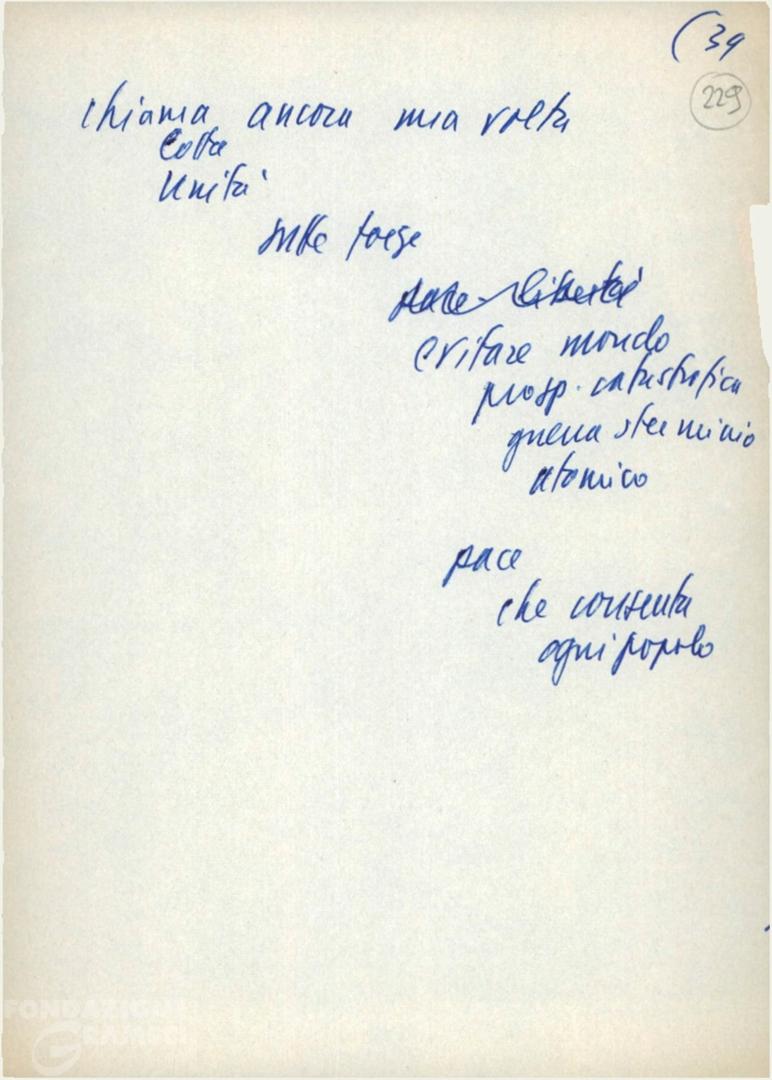 (39
229
chiama ancora una volta
lotta
unità
tutte forze
pace libertà
evitare mondo
prosp. catastrofica
guerra sterminio
atomico
pace
che consenta
ogni popolo
FONDAZIONE
GRAMSCI